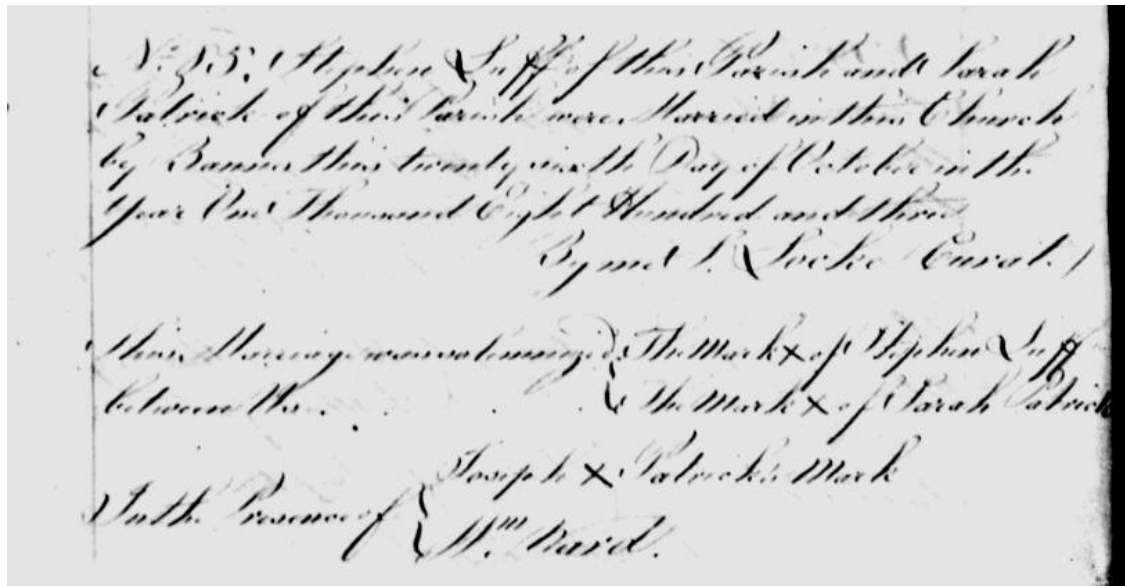 No. 35. Stephen Luff of this Parish and Sarah
Patrick of this Parish were Married in this Church
by Banns this twenty sixth Day of October in the
Year One Thousand Eight Hundred and three
By me S. Locke Curate
this Marriage was solemnized The Mark X of Stephen Luff
between Us . . . The Mark X of Sarah Patrick
Joseph X Patrick's Mark
In the Presence of
Wm. Ward.